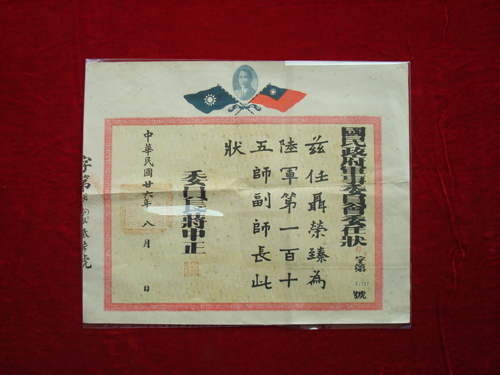 國民政府軍事委員會委任狀
字第
號
茲任聶榮臻為
陸軍第一百十
五師副師長此
狀
委員長蔣中正
中華民國廿六年八月 日
字第